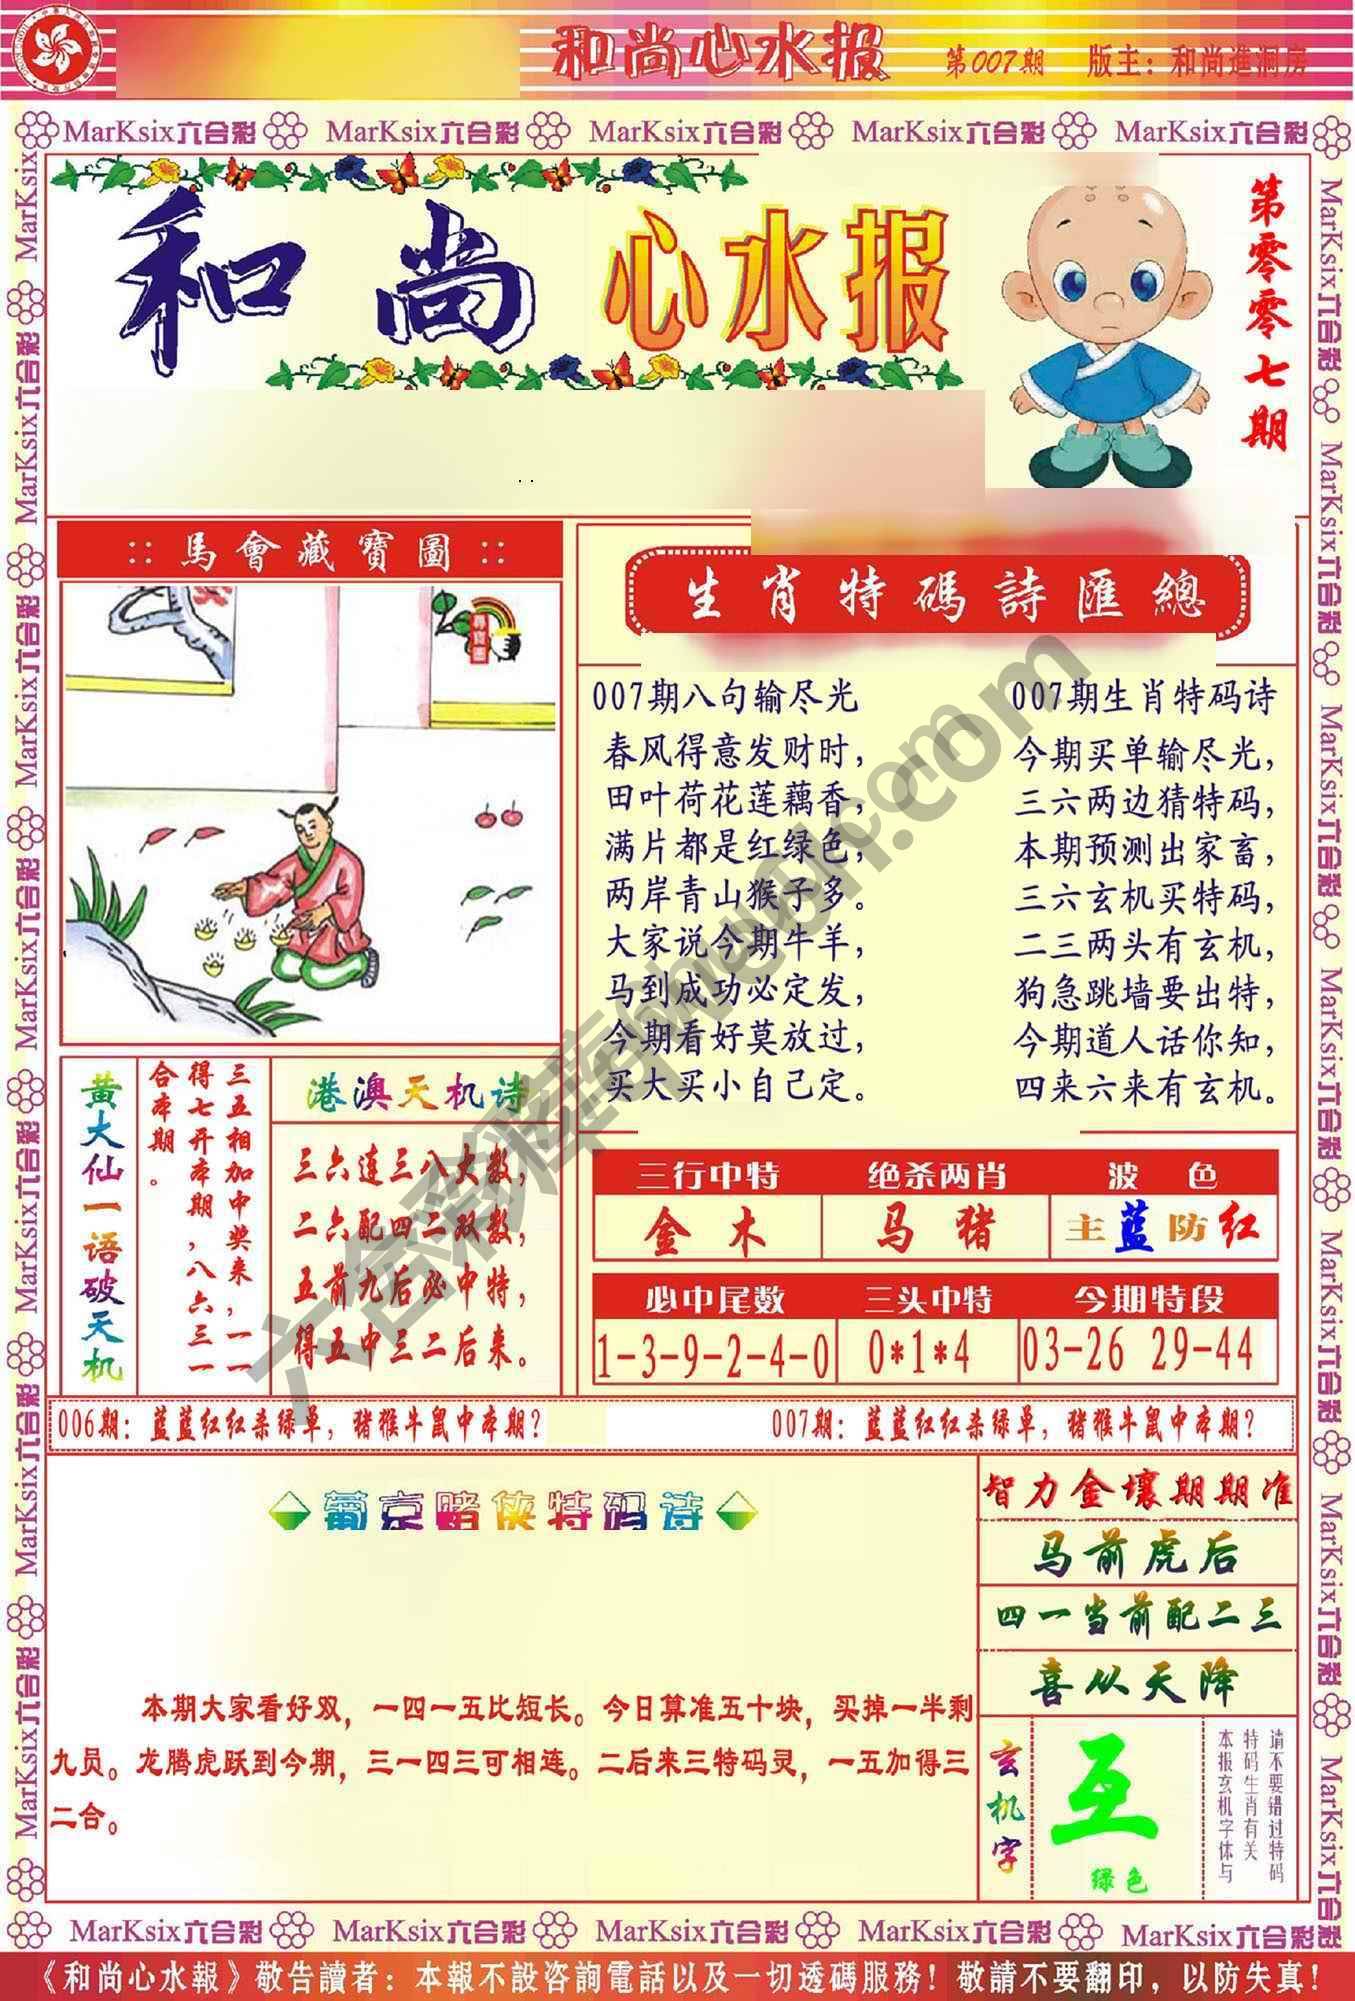 和尚心水报 第007期 版主：和尚進洞房
MarKsix六合彩 MarKsix六合彩 MarKsix六合彩 MarKsix六合彩 MarKsix六合彩
和尚 心水报
第零零七期
馬會藏寶圖
尋寶圖
生肖特碼詩匯總
007期八句输尽光
春风得意发财时，
田叶荷花莲藕香，
满片都是红绿色，
两岸青山猴子多。
大家说今期牛羊，
马到成功必定发，
今期看好莫放过，
买大买小自己定。
007期生肖特码诗
今期买单输尽光，
三六两边猜特码，
本期预测出家畜，
三六玄机买特码，
二三两头有玄机，
狗急跳墙要出特，
今期道人话你知，
四来六来有玄机。
黄大仙一语破天机
三五相加中奖来，一一
得七开本期，八六三一
合本期。
港澳天机诗
三六连三八大数，
二六配四二双数，
五前九后必中特，
得五中三二后来。
三行中特 绝杀两肖 波色
金木 马猪 主蓝防红
必中尾数 三头中特 今期特段
1-3-9-2-4-0 0*1*4 03-26 29-44
006期：蓝蓝红红杀绿单，猪猴牛鼠中本期？
007期：蓝蓝红红杀绿单，猪猴牛鼠中本期？
葡京赌侠特码诗
本期大家看好双，一四一五比短长。今日算准五十块，买掉一半剩
九员。龙腾虎跃到今期，三一四三可相连。二后来三特码灵，一五加得三
二合。
智力金壤期期准
马前虎后
四一当前配二三
喜从天降
玄机字
互
绿色
请不要错过特码
特码生肖有关
本报玄机字体与
MarKsix六合彩 MarKsix六合彩 MarKsix六合彩 MarKsix六合彩 MarKsix六合彩
《和尚心水報》敬告讀者：本報不設咨詢電話以及一切透碼服務！敬請不要翻印，以防失真！